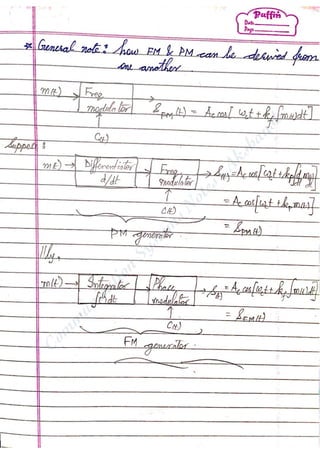 Puffin
Date
Page
* General note: how FM & PM can be derived from
one another.
m(t) → Freq modulator → S_FM(t) = Ac cos[ωct + kf∫m(t)dt]
↑
C(t)
Suppose:
m(t) → Differentiator d/dt → Freq modulator → S(t) = Ac cos[ωct + kf∫d m(t)/dt dt]
↑
C(t)
= Ac cos[ωct + kp m(t)]
= S_PM(t)
PM generator
|||ly,
m(t) → Integrator ∫dt → Phase modulator → S(t) = Ac cos[ωct + kp∫m(t)dt]
↑
C(t)
= S_FM(t)
FM generator.